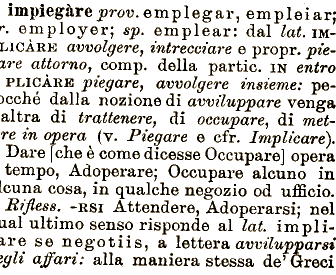 impiegàre prov. emplegar, empleiar;
r. employer; sp. emplear: dal lat. IM-
PLICÀRE avvolgere, intrecciare e propr. pie-
are attorno, comp. della partic. IN entro
PLICÀRE piegare, avvolgere insieme: pe-
occhè dalla nozione di avviluppare venga
altra di trattenere, di occupare, di met-
re in opera (v. Piegare e cfr. Implicare).
Dare [che è come dicesse Occupare] opera
tempo, Adoperare; Occupare alcuno in
lcuna cosa, in qualche negozio od ufficio.
Rifless. -RSI Attendere, Adoperarsi; nel
ual ultimo senso risponde al lat. impli-
are se negotiis, a lettera avvilupparsi
egli affari: alla maniera stessa de' Greci